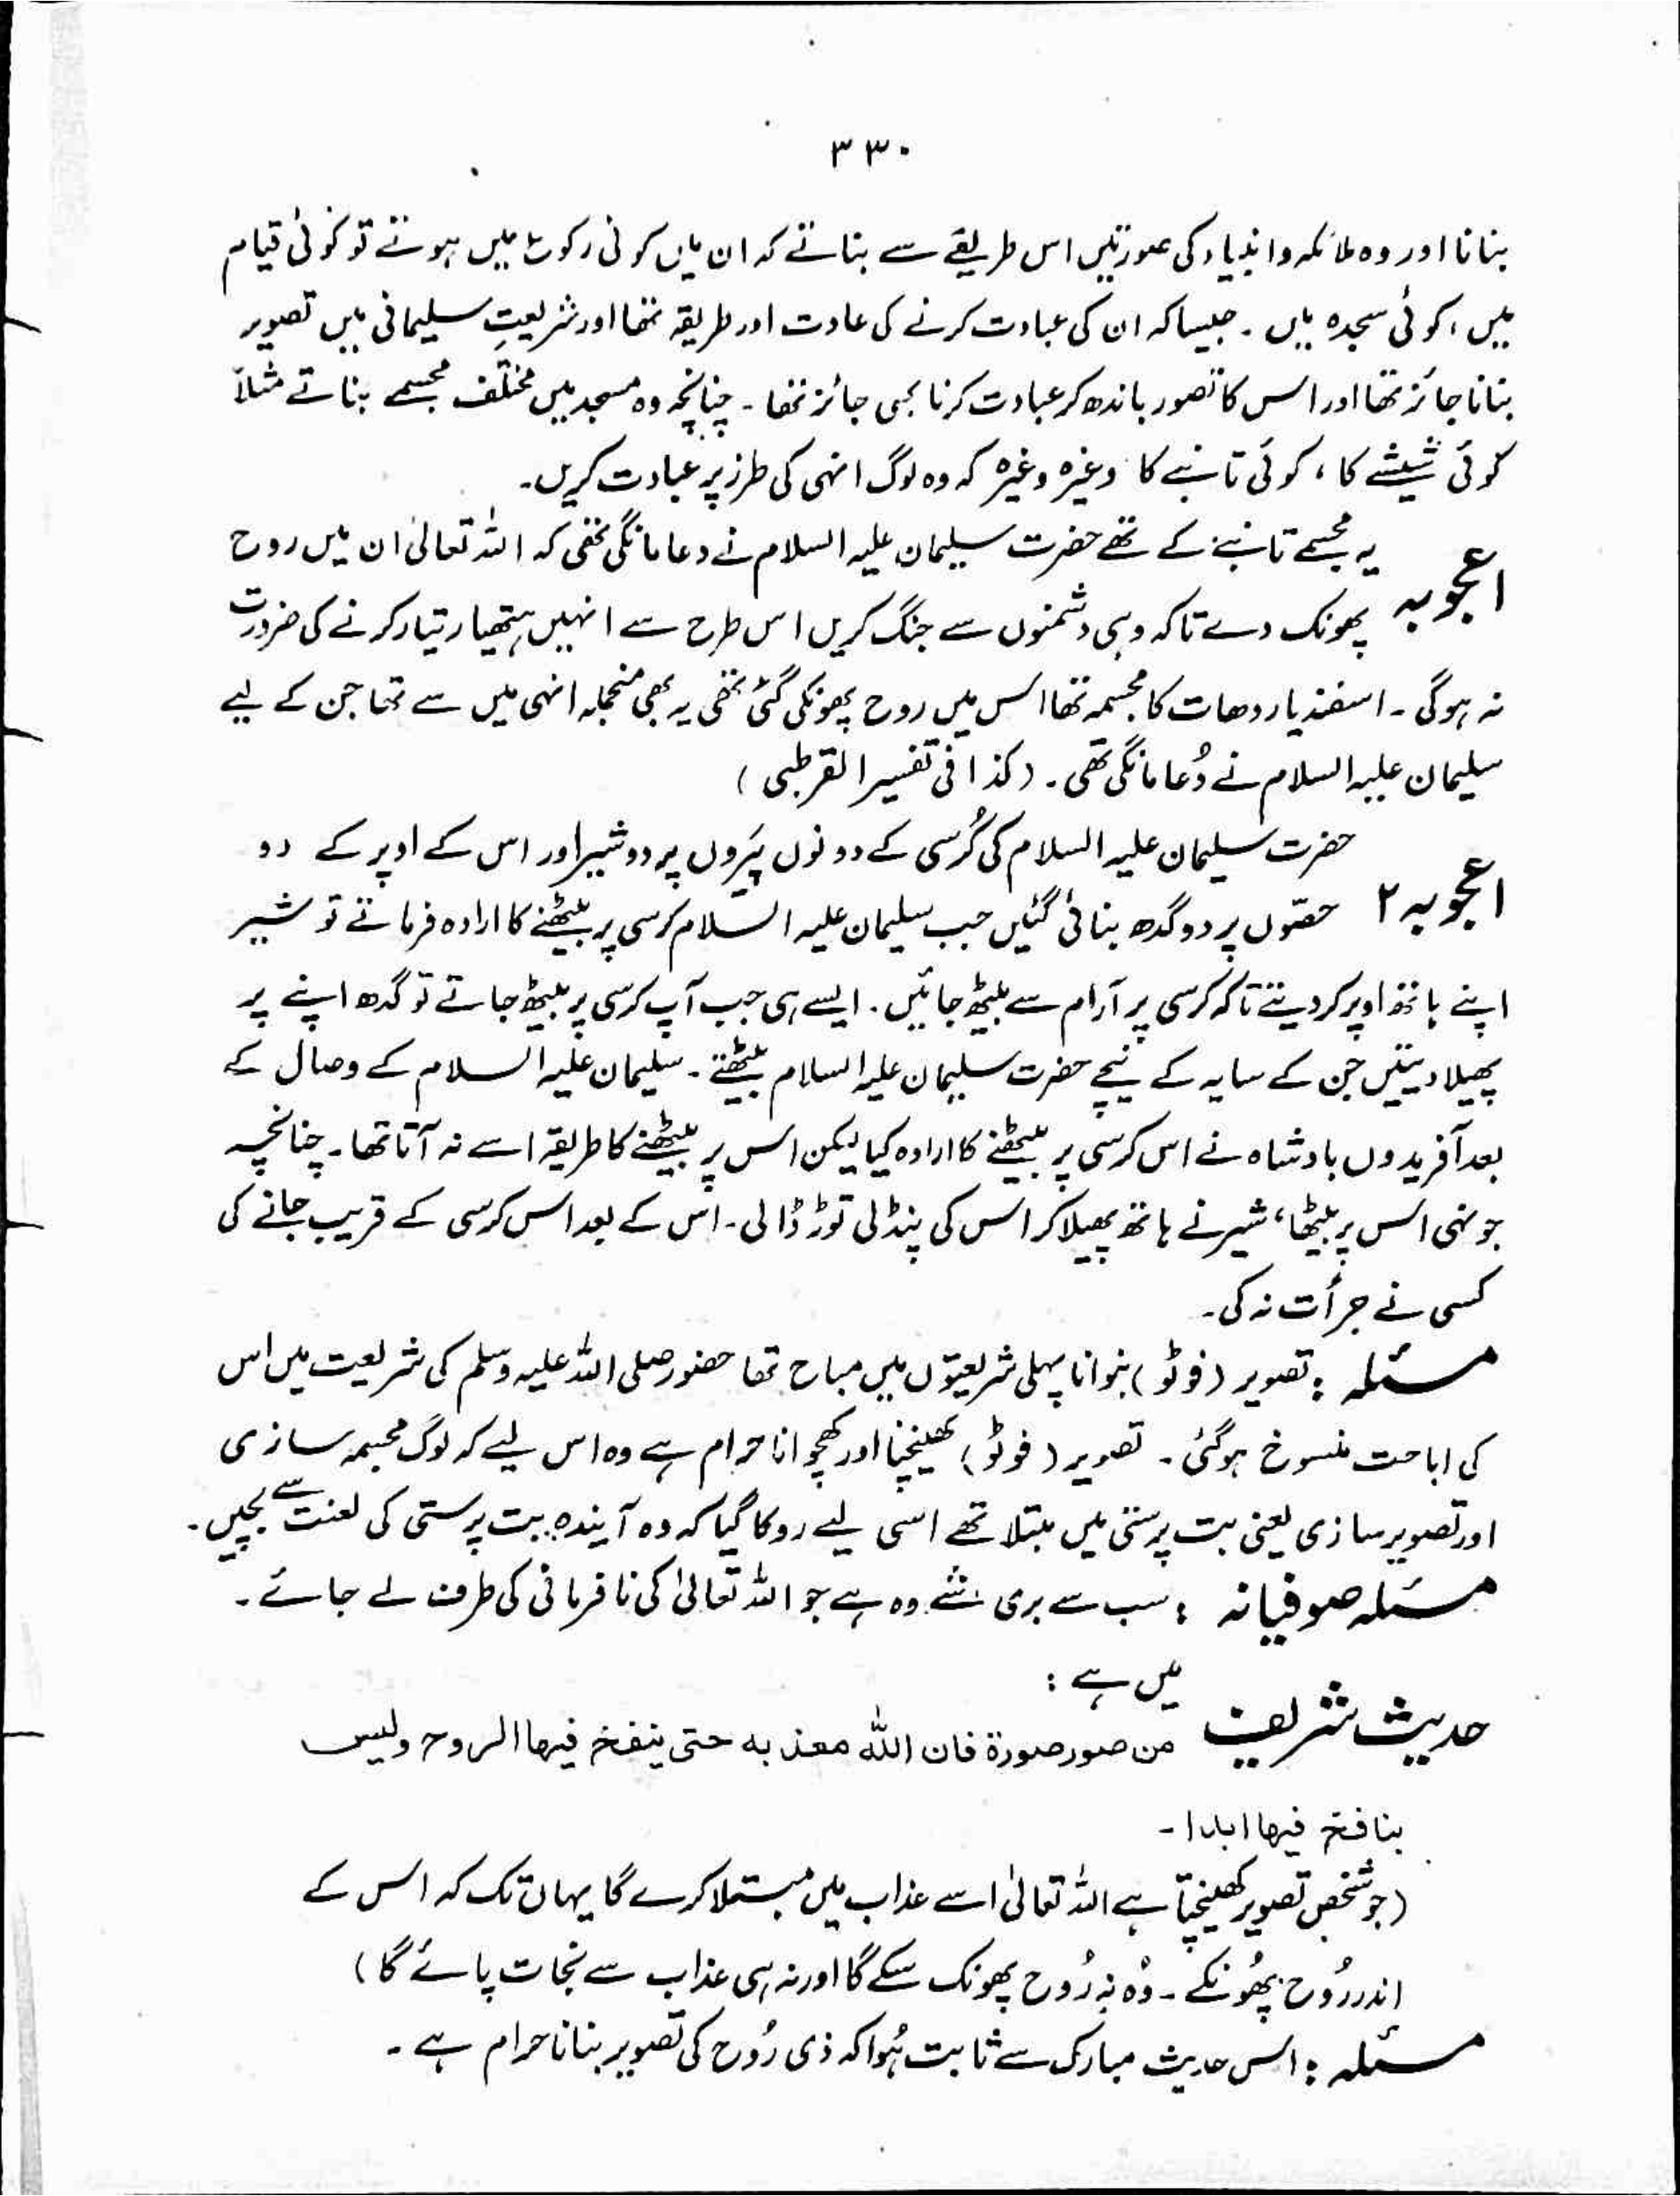 ۳۳۰
بنانا اور وہ ملائکہ و انبیاء کی صورتیں اس طریقے سے بناتے کہ ان میں کوئی رکوع میں ہوتے تو کوئی قیام
میں، کوئی سجدہ میں۔ جیسا کہ ان کی عبادت کرنے کی عادت اور طریقہ تھا اور شریعتِ سلیمانی میں تصویر
بنانا جائز تھا اور اس کا تصور باندھ کر عبادت کرنا بھی جائز تھا۔ چنانچہ وہ مسجد میں مختلف مجسمے بناتے مثلاً
کوئی شیشے کا، کوئی تانبے کا وغیرہ وغیرہ کہ وہ لوگ انہی کی طرز پر عبادت کریں۔
اعجوبہ یہ مجسمے تانبے کے تھے حضرت سلیمان علیہ السلام نے دعا مانگی تھی کہ اللہ تعالیٰ ان میں روح
پھونک دے تاکہ وہی دشمنوں سے جنگ کریں اس طرح سے انہیں ہتھیار تیار کرنے کی ضرورت
نہ ہوگی۔ اسفندیار دھات کا مجسمہ تھا اس میں روح پھونکی گئی تھی یہ بھی منجملہ انہی میں سے تھا جن کے لیے
سلیمان علیہ السلام نے دُعا مانگی تھی۔ (کذا فی تفسیر القرطبی)
حضرت سلیمان علیہ السلام کی کُرسی کے دونوں پَیروں پر دو شیر اور اس کے اوپر کے دو
اعجوبہ ۲ حصّوں پر دو گدھ بنائی گئیں جب سلیمان علیہ السلام کرسی پر بیٹھنے کا ارادہ فرماتے تو شیر
اپنے ہاتھ اوپر کر دیتے تاکہ کرسی پر آرام سے بیٹھ جائیں۔ ایسے ہی جب آپ کرسی پر بیٹھ جاتے تو گدھ اپنے پر
پھیلا دیتیں جن کے سایہ کے نیچے حضرت سلیمان علیہ السلام بیٹھتے۔ سلیمان علیہ السلام کے وصال کے
بعد آفریدوں بادشاہ نے اس کرسی پر بیٹھنے کا ارادہ کیا لیکن اس پر بیٹھنے کا طریقہ اسے نہ آتا تھا۔ چنانچہ
جونہی اس پر بیٹھا، شیر نے ہاتھ پھیلا کر اس کی پنڈلی توڑ ڈالی۔ اس کے بعد اس کرسی کے قریب جانے کی
کسی نے جرأت نہ کی۔
مسئلہ : تصویر (فوٹو) بنوانا پہلی شریعتوں میں مباح تھا حضور صلی اللہ علیہ وسلم کی شریعت میں اس
کی اباحت منسوخ ہوگئی۔ تصویر (فوٹو) کھینچنا اور کھچوانا حرام ہے وہ اس لیے کہ لوگ مجسمہ سازی
اور تصویر سازی یعنی بت پرستی میں مبتلا تھے اسی لیے روکا گیا کہ وہ آیندہ بت پرستی کی لعنت سے بچیں۔
مسئلہ صوفیانہ : سب سے بری شے وہ ہے جو اللہ تعالیٰ کی نافرمانی کی طرف لے جائے۔
میں ہے :
حدیث شریف من صور صورة فان الله معذبه حتى ينفخ فيها الروح وليس
بنافخ فيها ابدا۔
(جو شخص تصویر کھینچتا ہے اللہ تعالیٰ اسے عذاب میں مبتلا کرے گا یہاں تک کہ اس کے
اندر رُوح پھُونکے۔ وُہ نہ رُوح پھونک سکے گا اور نہ ہی عذاب سے نجات پائے گا)
مسئلہ : اس حدیث مبارک سے ثابت ہُوا کہ ذی رُوح کی تصویر بنانا حرام ہے۔